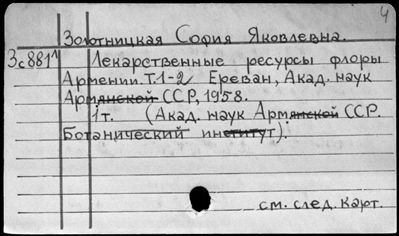 4
Золотницкая София Яковлевна.
Зс881л Лекарственные ресурсы флоры
Армении. Т.1-2 Ереван, Акад. наук
Армянской ССР, 1958.
1т. (Акад. наук Армянской ССР.
Ботанический институт).
см. след. карт.